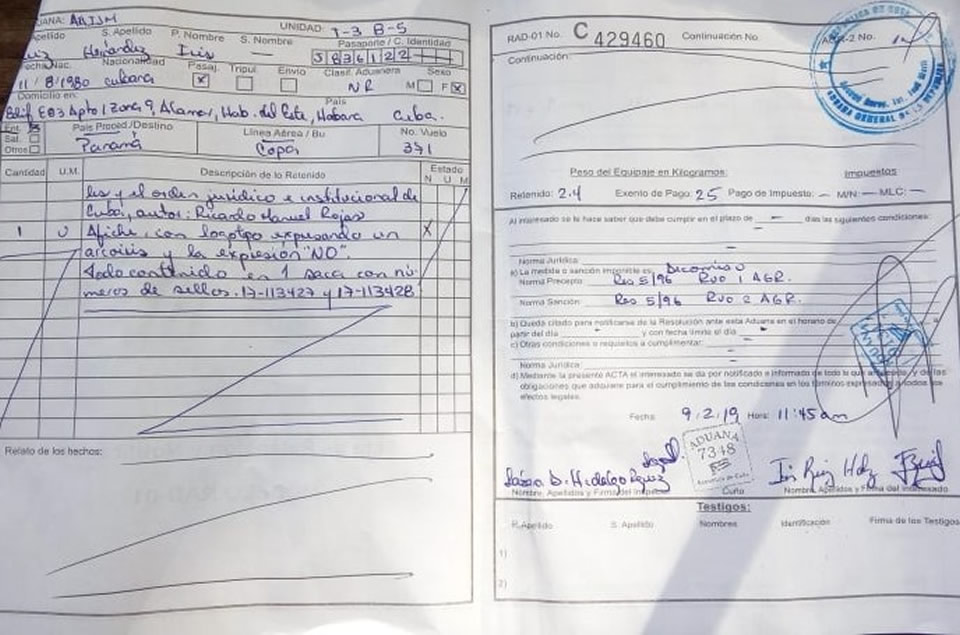 ADUANA: AAIJM UNIDAD: T-3 B-5
Apellido S. Apellido P. Nombre S. Nombre Pasaporte / C. Identidad
Ruiz Hernández Iris — J836122
Fecha Nac. Nacionalidad Pasaj. Tripul. Envío Clasif. Aduanera Sexo
11/8/1980 cubana X NR M F X
Domicilio en: País
Edif E83 Apto 1 Zona 9, Alamar, Hab. del Este, Habana Cuba.
Ent. País Proced./Destino Línea Aérea / Bu No. Vuelo
Sal. Panamá Copa 371
Otros
Cantidad U.M. Descripción de lo Retenido Estado
N U M
les y el orden jurídico e institucional de
Cuba, autor: Ricardo Manuel Rojas
1 U Afiche, con logotpo expresando un X
arcoiris y la expresión "NO".
todo contenido en 1 saca con nú-
meros de sellos. 17-113427 y 17-113428
Relato de los hechos:
RAD-01 No. C 429460 Continuación No.
Continuación:
Peso del Equipaje en Kilogramos Impuestos
Retenido: 2.4 Exento de Pago: 25 Pago de Impuesto: — M/N: — MLC: —
Al interesado se le hace saber que debe cumplir en el plazo de — días las siguientes condiciones:
Norma Jurídica:
a) La medida o sanción imponible es: Decomiso
Norma Precepto: Res 5/96 Rvo 1 AGR.
Norma Sanción: Res 5/96 Rvo 2 AGR.
b) Queda citado para notificarse de la Resolución ante esta Aduana en el horario de a
partir del día y con fecha límite el día
c) Otras condiciones o requisitos a cumplimentar:
Norma Jurídica:
d) Mediante la presente ACTA el interesado se da por notificado e informado de todo lo que y de las
obligaciones que adquiere para el cumplimiento de las condiciones en los términos expresados a todos los
efectos legales.
Fecha: 9/2/19 Hora: 11:45am
ADUANA
7348
Nombre, Apellidos y Firma del Cuño Nombre, Apellidos y Firma del Interesado
Testigos:
P. Apellido S. Apellido Nombres Identificación Firma de los Testigos
1)
2)